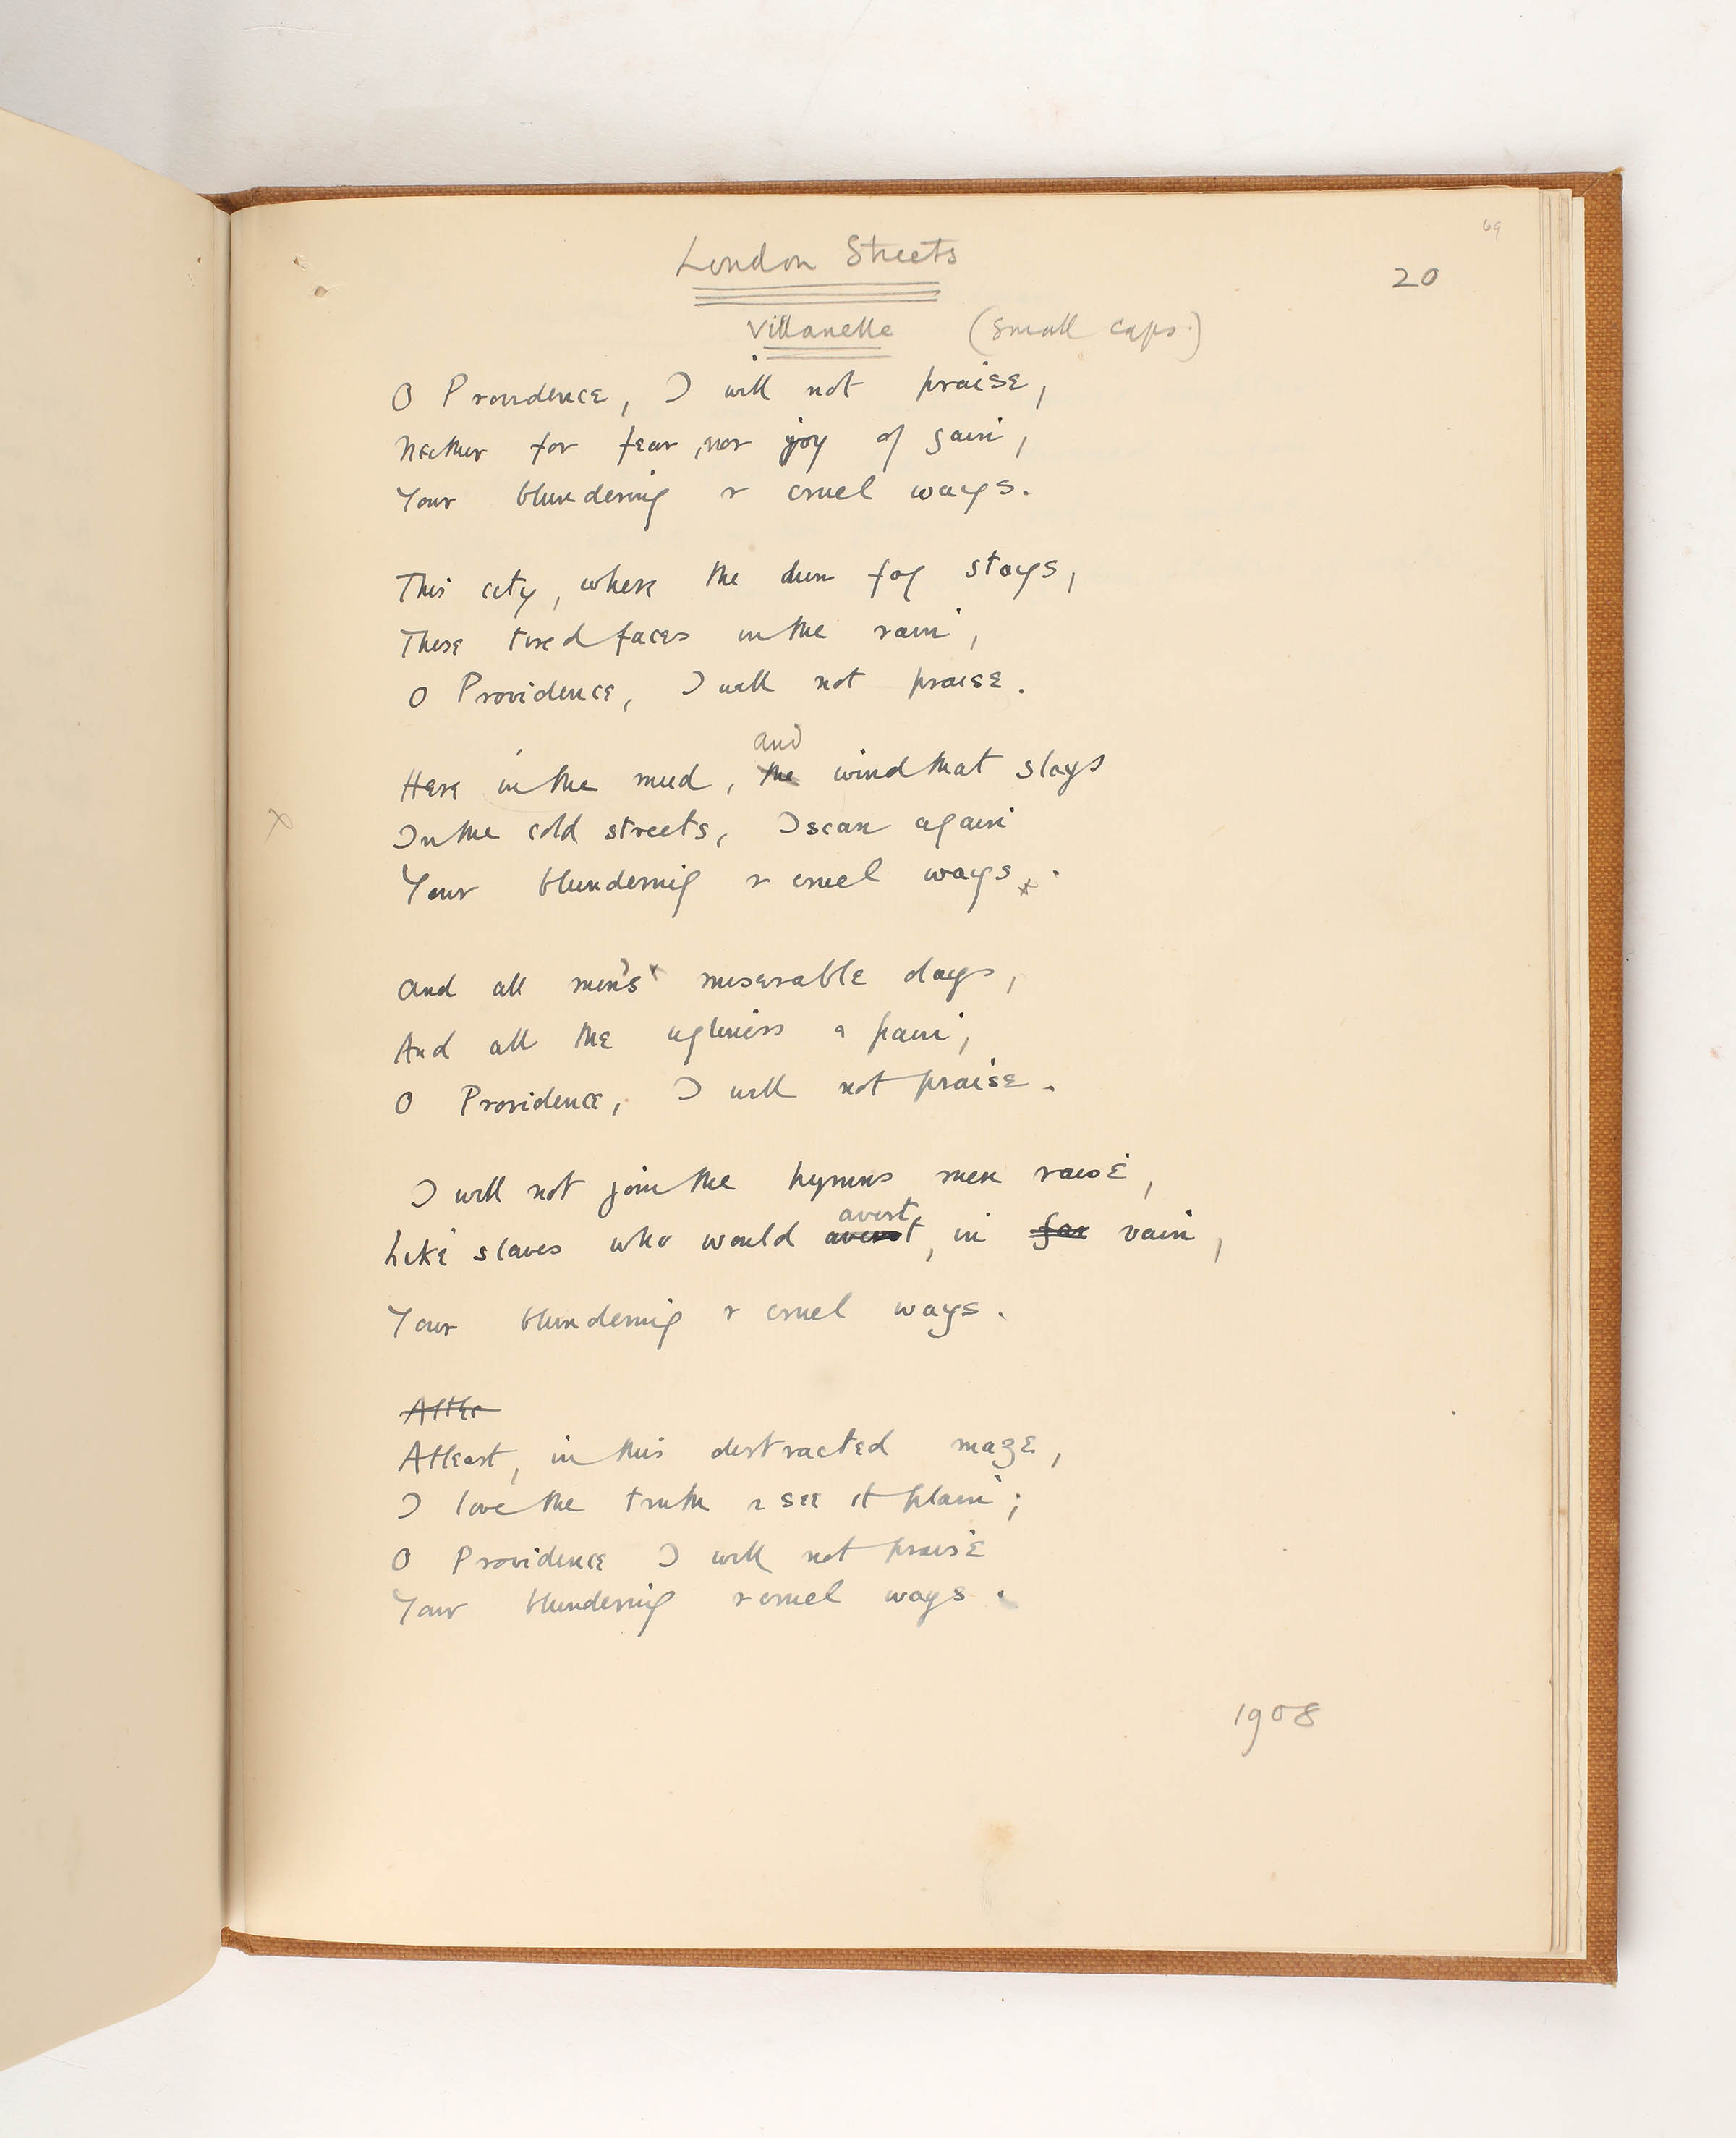 69
20
London Streets
Villanelle (small caps.)
O Providence, I will not praise,
Neither for fear, nor joy of gain,
Your blundering & cruel ways.
This city, where the dun fog stays,
These tired faces in the rain,
O Providence, I will not praise.
and
Here in the mud, the wind that slays
x
In the cold streets, I scan again
Your blundering & cruel ways x.
And all men's x miserable days,
And all the ugliness & pain,
O Providence, I will not praise.
I will not join the hymns men raise,
avert
Like slaves who would avert, in far vain,
Your blundering & cruel ways.
Atthe
At least, in this distracted maze,
I love the truth & see it plain;
O Providence I will not praise
Your blundering & cruel ways.
1908